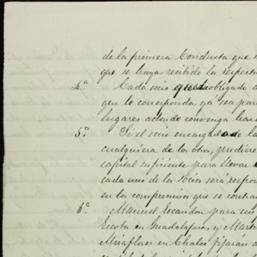 de la primera Conducta que s
que se haya recibido la respuest
4.ª Cada socio queda obligado a
que le corresponda ya sea par
lugares adonde convenga hac
5.ª Si el socio encargado de la
cualquiera de los otros, pudiere
capital suficiente para llevar
cada uno de los socios será respon
en los compromisos que se contra
6.ª Manuel Escandon para su
Escoba en Guadalajara y Mart
Miraflores en Chalco fijarán a